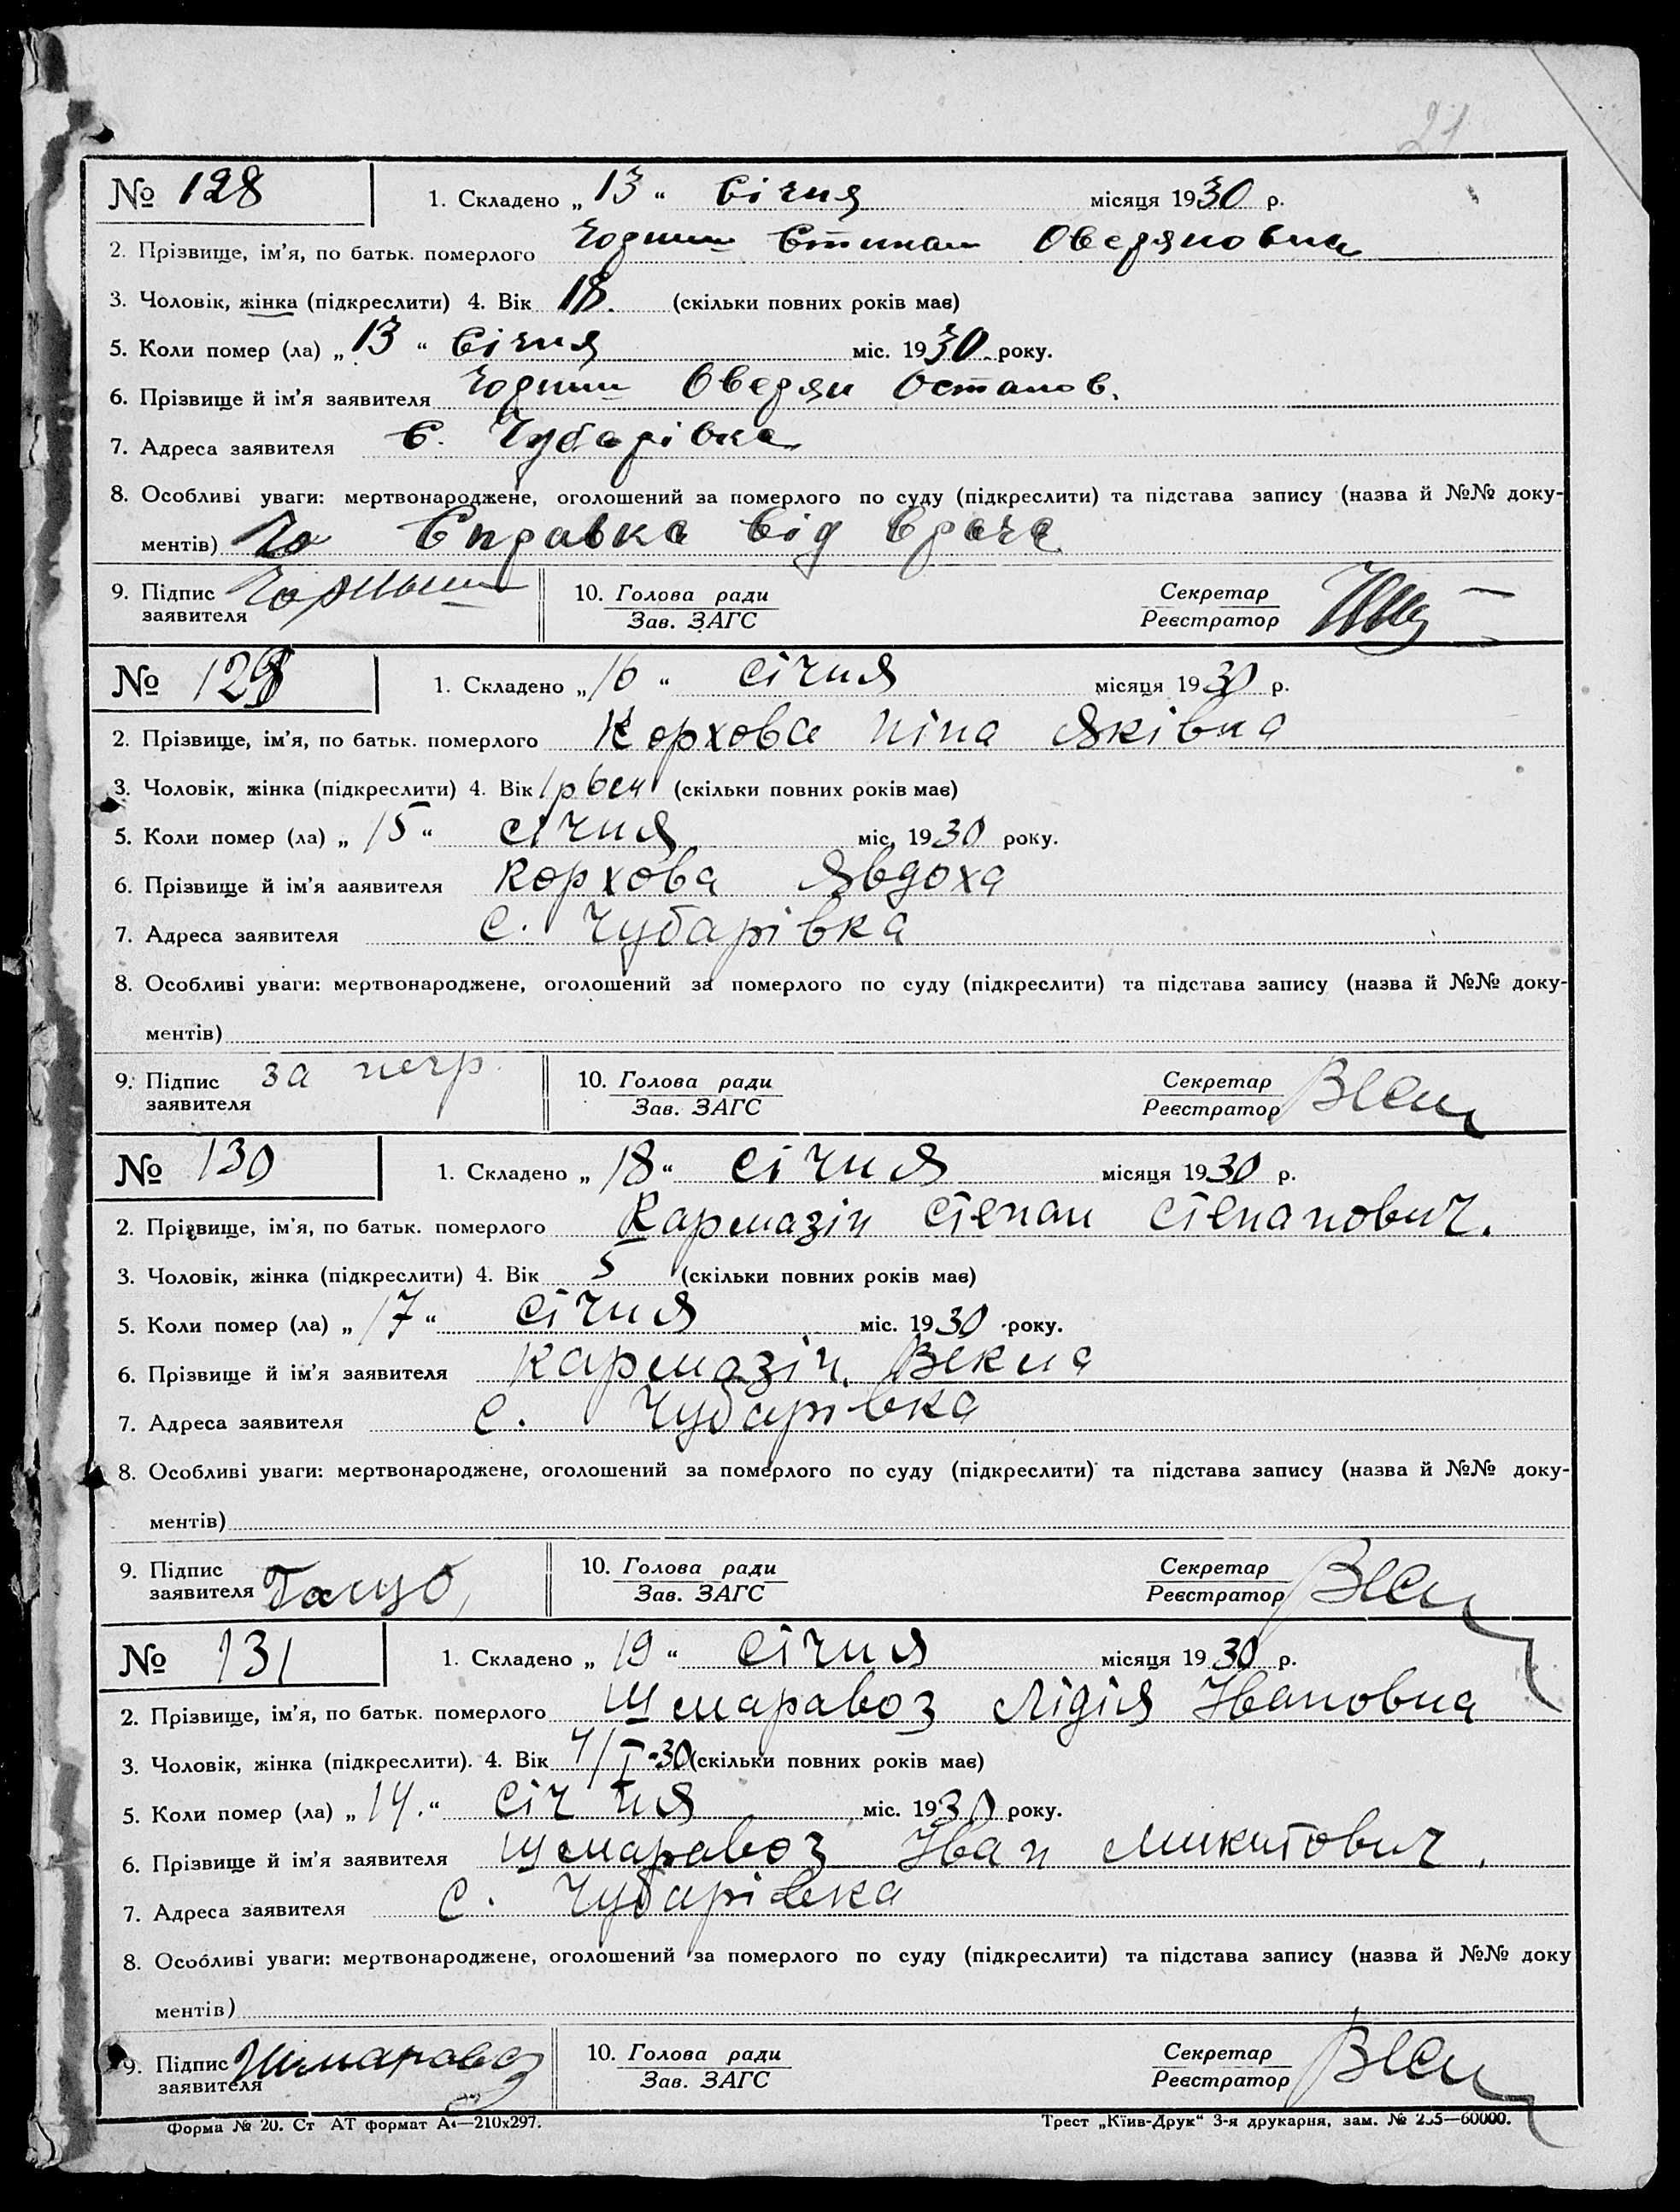 21
№ 128 1. Складено „ 13 “ Січня місяця 1930 р.
2. Прізвище, ім’я, по батьк. померлого
3. Чоловік, жінка (підкреслити) 4. Вік 18. (скільки повних років має)
5. Коли помер (ла) „ 13 “ Січня міс. 1930 року.
6. Прізвище й ім’я заявителя
7. Адреса заявителя С. Чубарівка
8. Особливі уваги: мертвонароджене, оголошений за померлого по суду (підкреслити) та підстава запису (назва й №№ доку-
ментів) Справка від врача
9. Підпис 10. Голова ради Секретар
заявителя Зав. ЗАГС Реєстратор
№ 129 1. Складено „ 16 “ січня місяця 1930 р.
2. Прізвище, ім’я, по батьк. померлого Корхова Ніна Яківна
3. Чоловік, жінка (підкреслити) 4. Вік 1р (скільки повних років має)
5. Коли помер (ла) „ 15 “ січня міс. 1930 року.
6. Прізвище й ім’я ааявителя Корхова Явдоха
7. Адреса заявителя с. Чубарівка
8. Особливі уваги: мертвонароджене, оголошений за померлого по суду (підкреслити) та підстава запису (назва й №№ доку-
ментів)
9. Підпис за негр. 10. Голова ради Секретар
заявителя Зав. ЗАГС Реєстратор
№ 130 1. Складено „ 18 “ січня місяця 1930 р.
2. Прізвище, ім’я, по батьк. померлого Кармазін Степан Степанович.
3. Чоловік, жінка (підкреслити) 4. Вік 5 (скільки повних років має)
5. Коли помер (ла) „ 17 “ січня міс. 1930 року.
6. Прізвище й ім’я заявителя Кармазін Векла
7. Адреса заявителя с. Чубарівка
8. Особливі уваги: мертвонароджене, оголошений за померлого по суду (підкреслити) та підстава запису (назва й №№ доку-
ментів)
9. Підпис 10. Голова ради Секретар
заявителя Зав. ЗАГС Реєстратор
№ 131 1. Складено „ 19 “ січня місяця 1930 р.
2. Прізвище, ім’я, по батьк. померлого Шмаравоз Лідія Івановна
3. Чоловік, жінка (підкреслити). 4. Вік 4/I-30 (скільки повних років має)
5. Коли помер (ла) „ 14. “ січня міс. 1930 року.
6. Прізвище й ім’я заявителя Шмаравоз Іван Микитович.
7. Адреса заявителя с. Чубарівка
8. Особливі уваги: мертвонароджене, оголошений за померлого по суду (підкреслити) та підстава запису (назва й №№ доку
ментів)
9. Підпис Шмаравоз 10. Голова ради Секретар
заявителя Зав. ЗАГС Реєстратор
Форма № 20. Ст АТ формат А4—210х297. Трест „Київ-Друк“ 3-я друкарня, зам. № 235—60000.